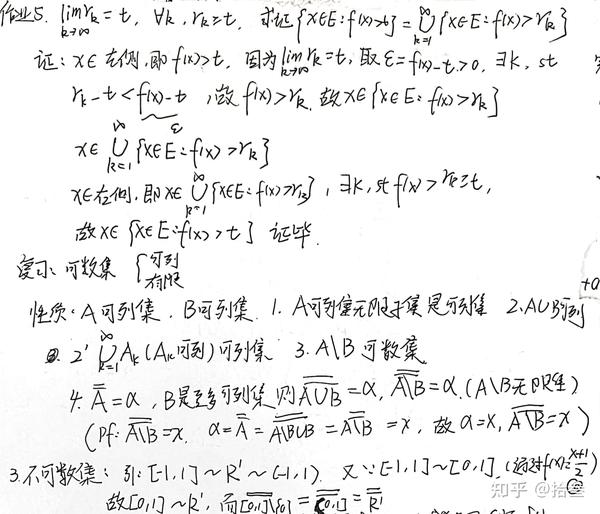 作业5. lim_{k→∞} r_k = t, ∀k, r_k ≥ t, 求证 {x∈E: f(x)>t} = ⋃_{k=1}^∞ {x∈E: f(x)>r_k}
证: x∈左侧, 即 f(x)>t, 因为 lim_{k→∞} r_k = t, 取 ε = f(x)-t>0, ∃k, st
r_k - t < f(x)-t, 故 f(x)>r_k, 故 x∈{x∈E: f(x)>r_k}
ε
x∈ ⋃_{k=1}^∞ {x∈E: f(x)>r_k}
x∈右侧, 即 x∈ ⋃_{k=1}^∞ {x∈E: f(x)>r_k}, ∃k, st f(x) > r_k ≥ t,
故 x∈{x∈E: f(x)>t} 证毕.
复习: 可数集 { 可列 有限
性质: A可列集, B可列集. 1. A可列集无限子集是可列集 2. A∪B可列
2' ⋃_{k=1}^∞ A_k (A_k可列) 可列集 3. A\B 可数集
4. A̿ = α, B是至多可列集 则 A∪B̿ = α, A\B̿ = α. (A\B无限集)
(pf: A\B̿ = x. α = A̿ = A\B∪B̿ = A\B̿ = x, 故 α=x, A\B̿ = x)
3. 不可数集: 引: [-1,1] ~ R' ~ (-1,1). 又∵ [-1,1] ~ [0,1], f(x)=(x+1)/2
故 [0,1] ~ R', 而 = R̿'
知乎 @拾叁